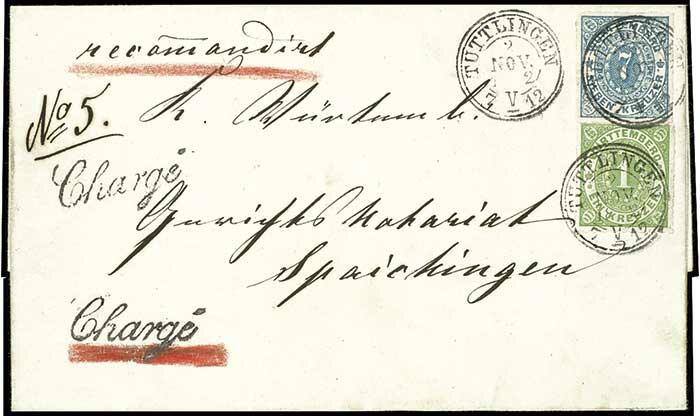 recomandirt
No 5.
K. Württemb.
Chargé
Gerichts Notariat
Spaichingen
Chargé
TUTTLINGEN
2
NOV.
7 2
V 12
WÜRTTEMBERG
7
SIEBEN KREUZER
TUTTLINGEN
NOV.
7 V 12
WÜRTTEMBERG
1
EIN KREUZER